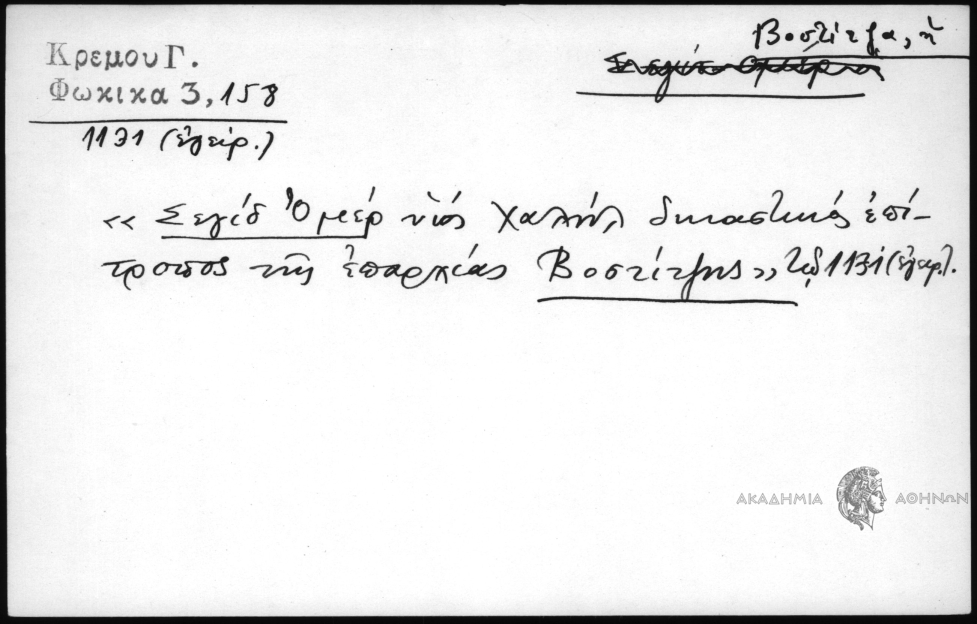 Κρεμου Γ.
Φωκικα 3, 158
1131 (ἐγείρ.)
Βοστίτζα, ἡ
« Σεγίδ Ὀμέρ υἱός Χαλήλ δικαστικός ἐπί-
τροπος τῆς ἐπαρχίας Βοστίτζης » τῷ 1131 (ἐγειρ.).
ΑΚΑΔΗΜΙΑ ΑΘΗΝΩΝ